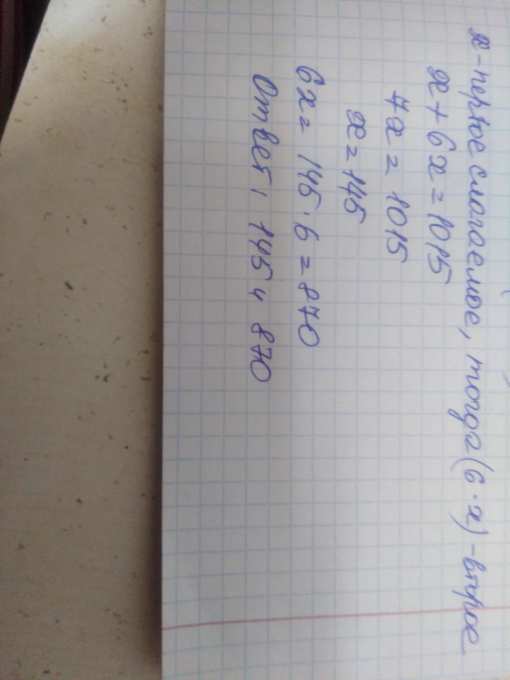 x - первое слагаемое, тогда (6·x) - второе
x + 6x = 1015
7x = 1015
x = 145
6x = 145·6 = 870
Ответ: 145 и 870